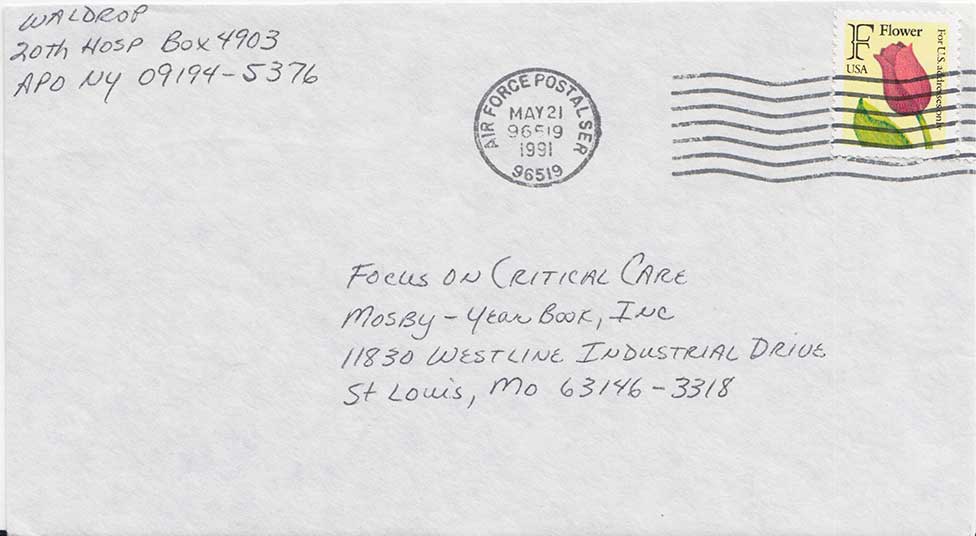 WALDROP
20th HOSP Box 4903
APO NY 09194-5376
AIR FORCE POSTAL SER
MAY 21
96519
1991
96519
F Flower
USA
For U.S. addresses only
FOCUS ON CRITICAL CARE
MOSBY - Year Book, INC
11830 WESTLINE INDUSTRIAL DRIVE
St Louis, Mo 63146-3318